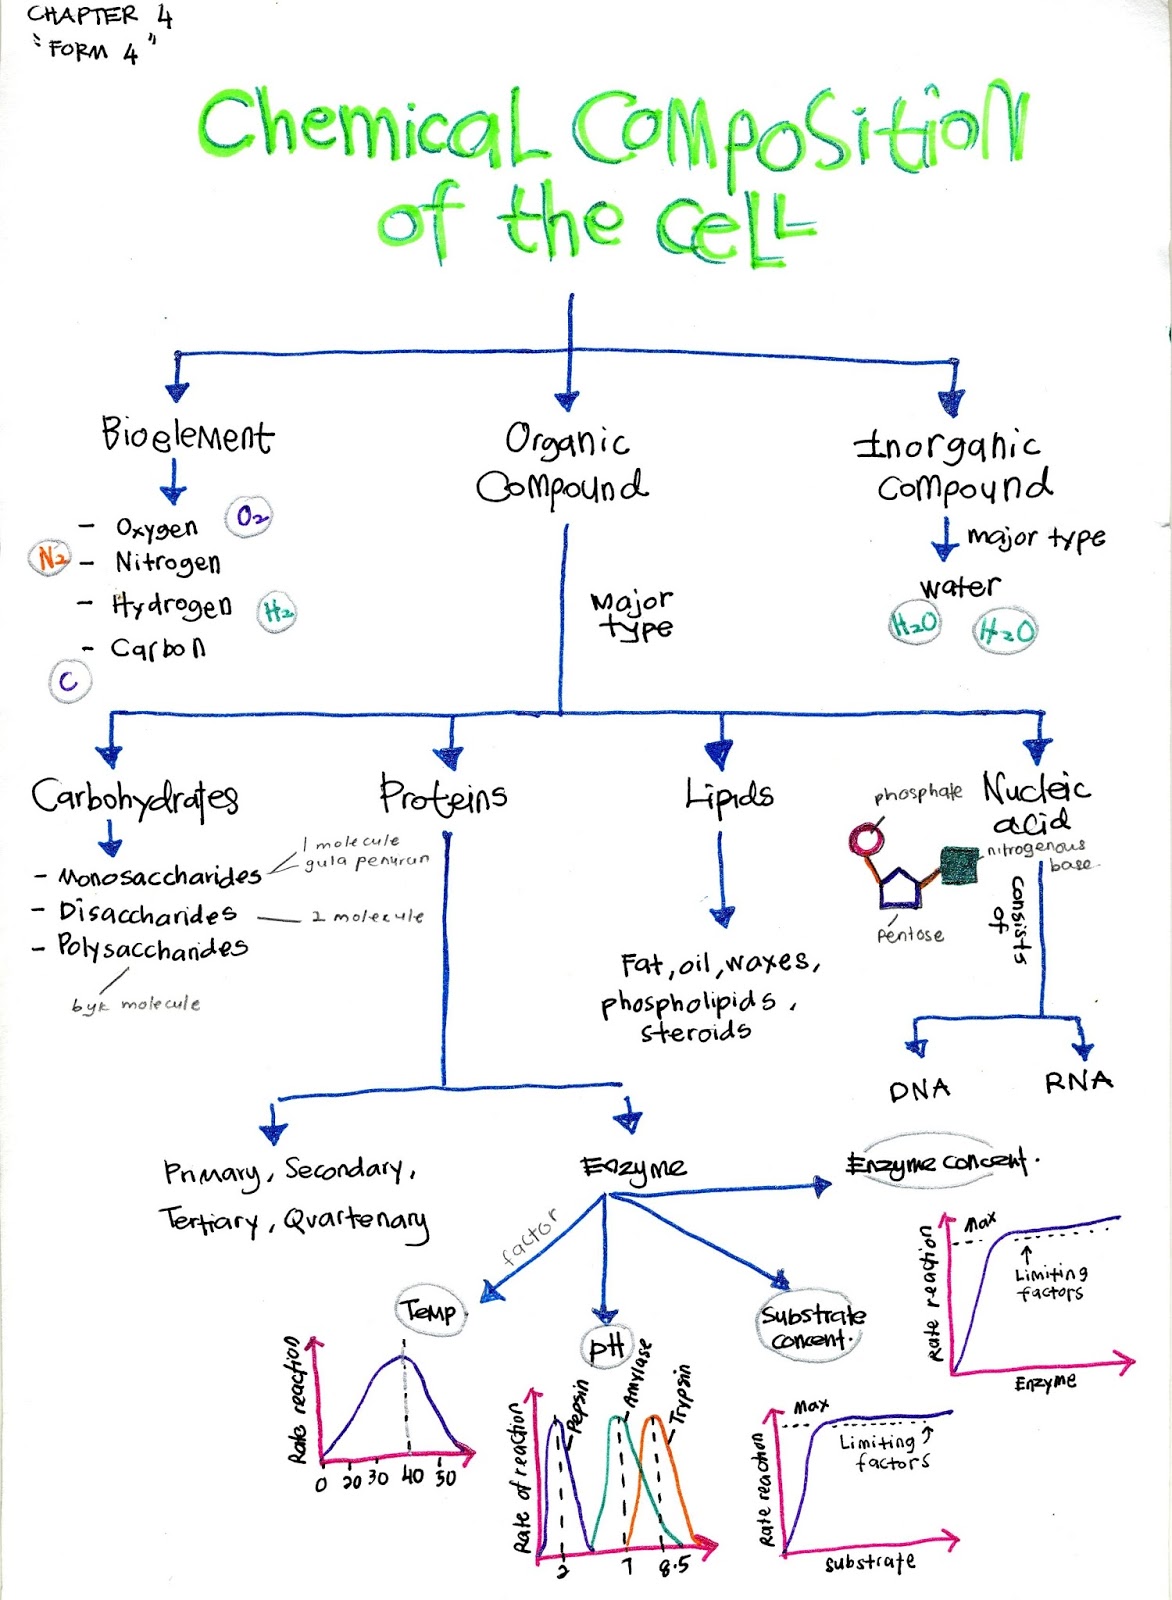 CHAPTER 4
"FORM 4"
Chemical Composition
of the Cell
Bioelement
Organic
Compound
Inorganic
compound
- Oxygen O₂
N₂ - Nitrogen
- Hydrogen H₂
- Carbon
C
Major
type
major type
water
H₂O H₂O
Carbohydrates
Proteins
Lipids
Nucleic
acid
phosphate
nitrogenous
base
pentose
consists
of
1 molecule
gula penurun
- Monosaccharides
- Disaccharides
2 molecule
- Polysaccharides
byk molecule
Fat, oil, waxes,
phospholipids,
steroids
DNA
RNA
Primary, Secondary,
Tertiary, Quartenary
Enzyme
Enzyme concent.
factor
Temp
pH
Substrate
concent.
Rate reaction
Max
Limiting
factors
Enzyme
Rate reaction
0 20 30 40 50
Rate of reaction
Pepsin
Amylase
Trypsin
2 7 8.5
Rate reaction
Max
Limiting
factors
substrate